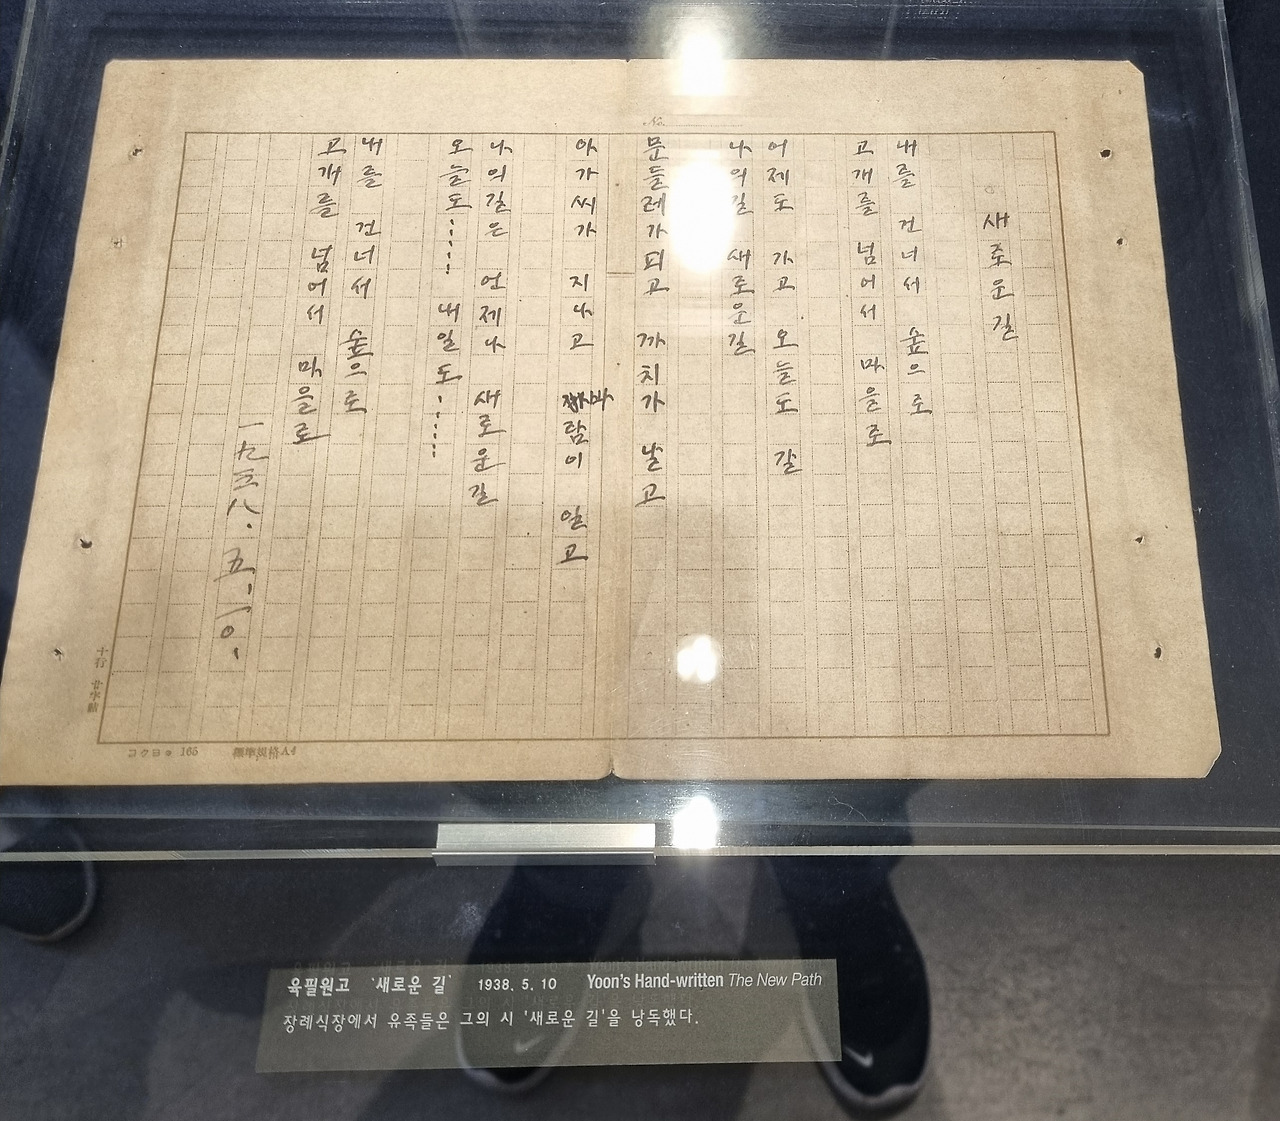 새로운길
내를 건너서 숲으로
고개를 넘어서 마을로
어제도 가고 오늘도 갈
나의길 새로운길
문들레가피고 까치가 날고
아가씨가 지나고 바람이 일고
나의길은 언제나 새로운길
오늘도…… 내일도……
내를 건너서 숲으로
고개를 넘어서 마을로
一九三八. 五. 一〇.
No.
十行 廿字詰
コクヨ 165 標準規格A4
육필원고 '새로운 길' 1938. 5. 10 Yoon's Hand-written The New Path
장례식장에서 유족들은 그의 시 '새로운 길'을 낭독했다.